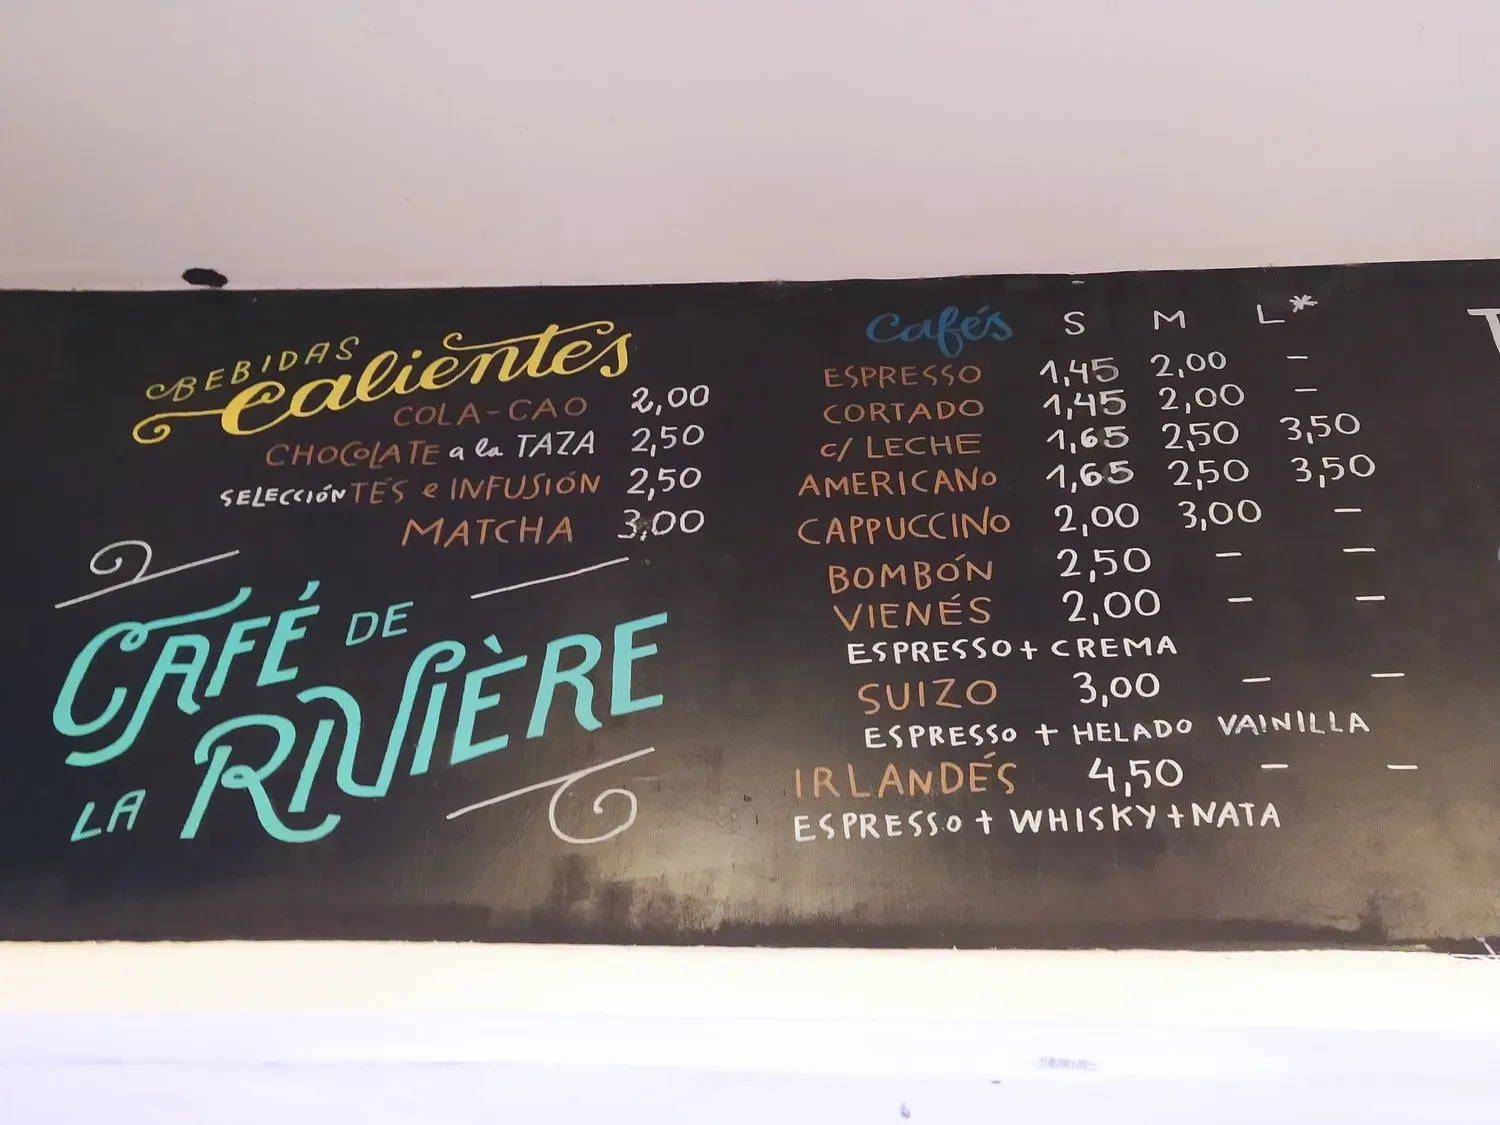 BEBIDAS
calientes
COLA-CAO 2,00
CHOCOLATE a la TAZA 2,50
SELECCIÓN TÉS e INFUSIÓN 2,50
MATCHA 3,00
CAFÉ DE
LA RIVIÈRE
Cafés S M L*
ESPRESSO 1,45 2,00 -
CORTADO 1,45 2,00 -
c/ LECHE 1,65 2,50 3,50
AMERICANO 1,65 2,50 3,50
CAPPUCCINO 2,00 3,00 -
BOMBÓN 2,50 - -
VIENÉS 2,00 - -
ESPRESSO + CREMA
SUIZO 3,00 - -
ESPRESSO + HELADO VAINILLA
IRLANDÉS 4,50 - -
ESPRESSO + WHISKY + NATA